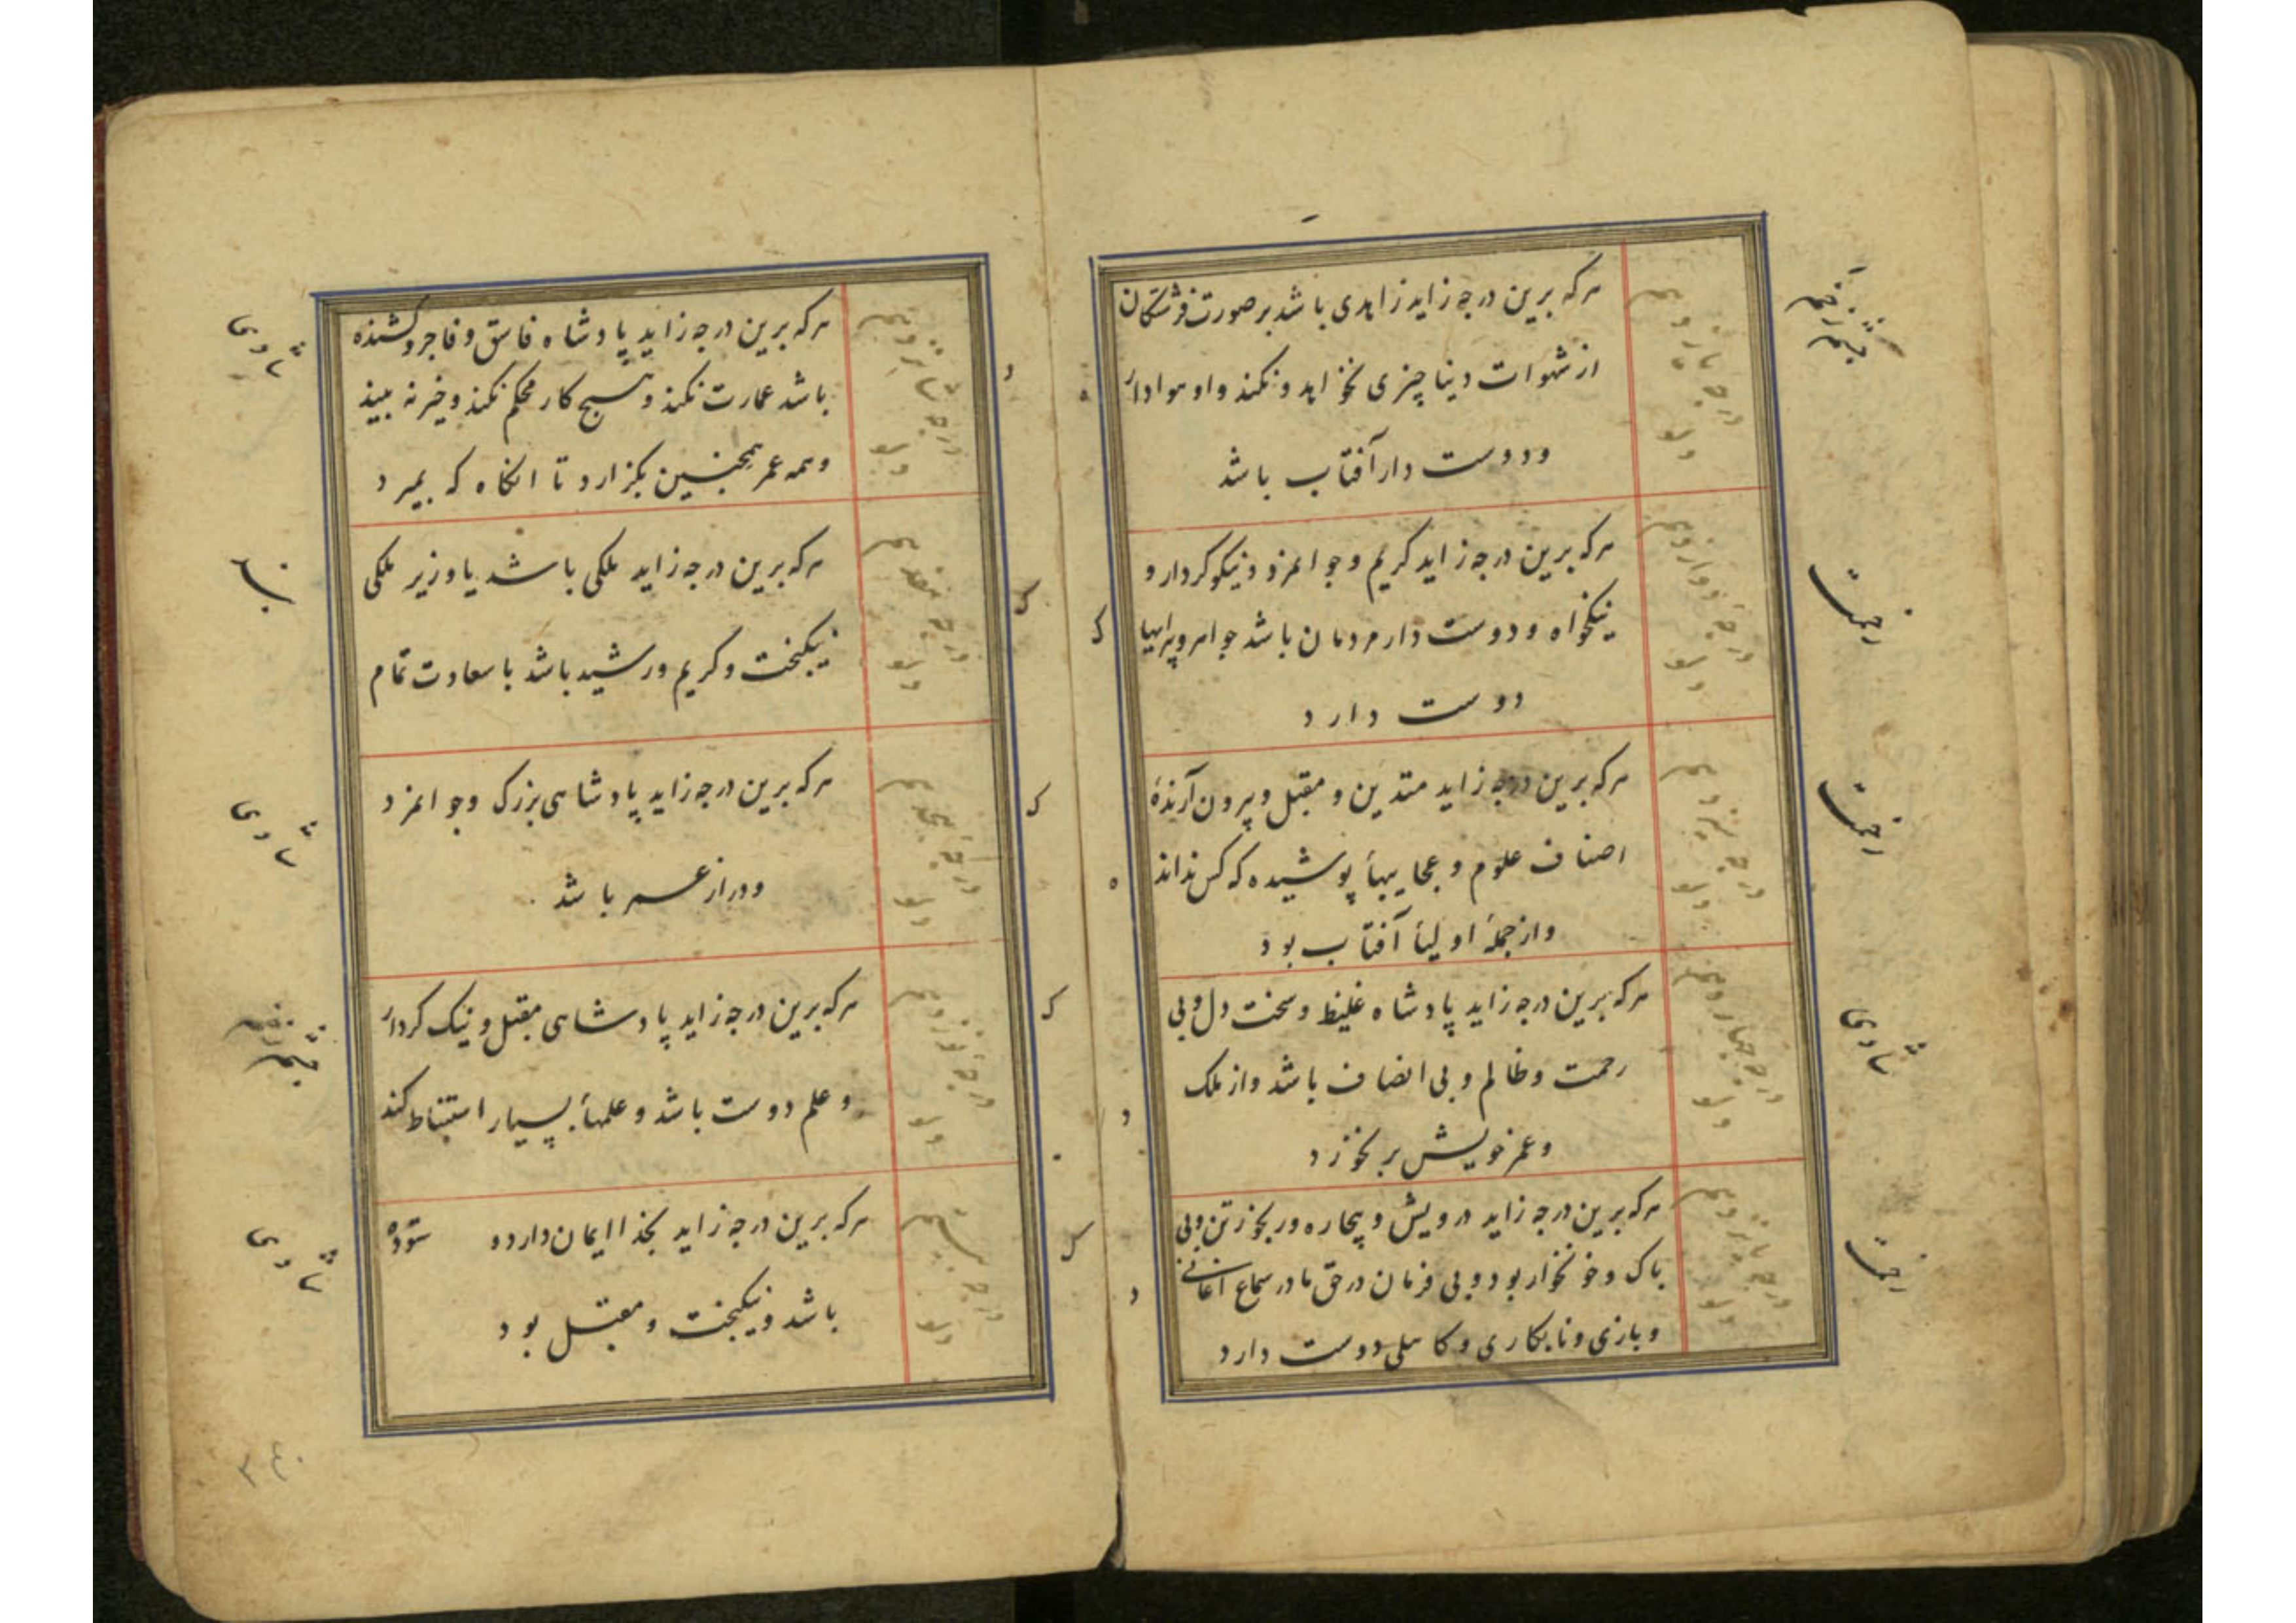 هرکه برین درجه زاید زاهدی باشد بر صورت فرشتگان
از شهوات دنیا چیزی نخواهد و نکند و او هوادار
و دوست دار آفتاب باشد
هرکه برین درجه زاید کریم و جوانمرد و نیکو کردار و
نیکخواه و دوست دار مردمان باشد جواهر و پیرایها
دوست دارد
هرکه برین درجه زاید متدین و مقبل و بیرون آرندهٔ
اصناف علوم و عجایبهاء پوشیده که کس نداند
و از جملهٔ اولیاء آفتاب بود
هرکه برین درجه زاید پادشاه غلیظ و سخت دل و بی
رحمت و ظالم و بی انصاف باشد و از ملک
و عمر خویش بر نخورد
هرکه برین درجه زاید درویش و بیچاره و رنجور تن و بی
باک و خونخوار بود و بی فرمان در حق مادر سماع اغانی
و بازی و نابکاری و کاهلی دوست دارد
درجه یازدهم
درجه دوازدهم
درجه سیزدهم
درجه چهاردهم
درجه پانزدهم
هرکه برین درجه زاید پادشاه فاسق و فاجر و کشنده
باشد عمارت نکند و هیچ کار محکم نکند و خیر نه بیند
و همه عمر همچنین بگزارد تا انگاه که بمیرد
هرکه برین درجه زاید ملکی باشد یا وزیر ملکی
نیکبخت و کریم و رشید باشد با سعادت تمام
هرکه برین درجه زاید پادشاهی بزرک و جوانمرد
و دراز عمر باشد
هرکه برین درجه زاید پادشاهی مقبل و نیک کردار
و علم دوست باشد و علمهاء بسیار استنباط کند
هرکه برین درجه زاید بخدا ایمان دارد و ستوده
باشد و نیکبخت و مقبل بود
درجه شانزدهم
درجه هفدهم
درجه هجدهم
درجه نوزدهم
درجه بیستم